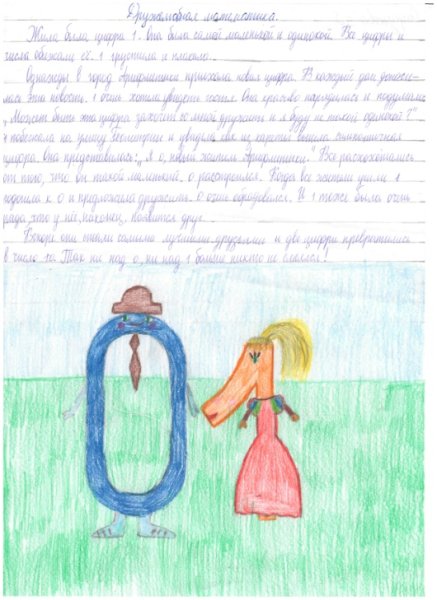 Дружелюбная математика.
Жила была цифра 1. Она была самой маленькой и одинокой. Все цифры и
числа обижали её. 1 грустила и плакала.
Однажды в город Арифметики приехала новая цифра. В каждый дом донес-
лась эта новость. 1 очень хотела увидеть гостя. Она красиво нарядилась и подумала:
„Может быть эта цифра захочет со мной дружить и я буду не такой одинокой?"
и побежала на улицу Геометрии и увидела как из кареты вышла
цифра. Она представилась: „Я 0, новый житель Арифметики." Все расхохотались
от того, что он такой маленький. 0 расстроился. Когда все жители ушли 1
подошла к 0 и предложила дружить. 0 очень обрадовался. И 1 тоже была очень
рада, что у неё, наконец, появится друг.
Вскоре они стали самыми лучшими друзьями и две цифры превратились
в число 10. Так ни над 0, ни над 1 больше никто не смеялся!